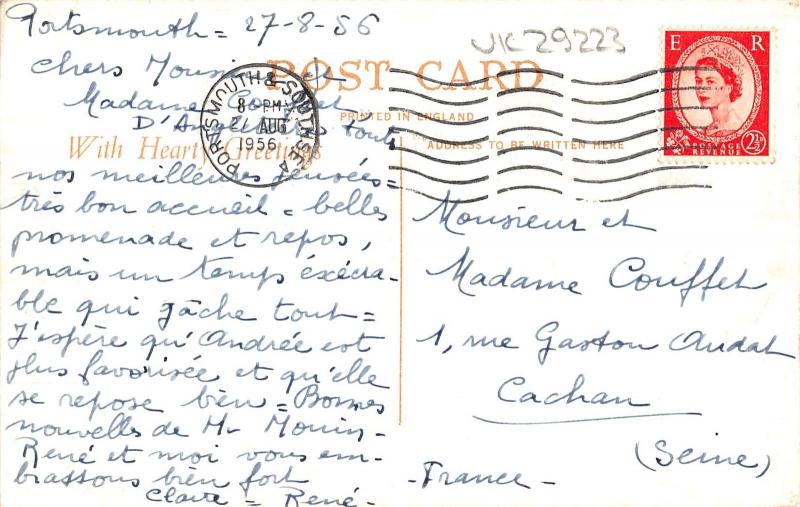 Portsmouth = 27-8-56
UK29223
Chers Monsieur et
POST CARD
Madame Couffet
PRINTED IN ENGLAND
D'Angleterre toutes
With Hearty Greetings
ADDRESS TO BE WRITTEN HERE
nos meilleures pensées =
très bon accueil = belles
promenade et repos,
mais un temps éxécra-
ble qui gâche tout =
J'espère qu'Andrée est
plus favorisée et qu'elle
se repose bien = Bonnes
nouvelles de Mr Monin -
René et moi vous em-
brassons bien fort
Claire = René -
PORTSMOUTH & SOUTHSEA
8 - PM
27 AUG
1956
E R
POSTAGE
REVENUE
2½
Monsieur et
Madame Couffet
1, rue Gaston Audat
Cachan
(Seine)
- France -